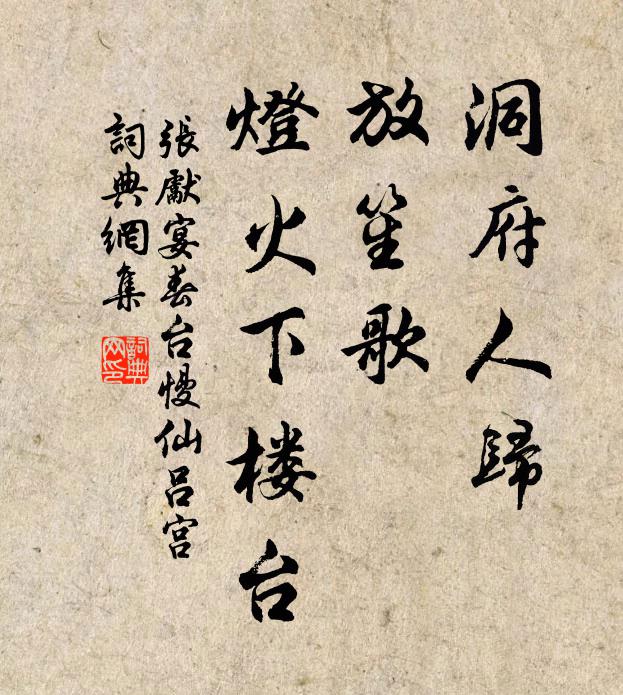 洞府人歸
放笙歌
燈火下楼台
張獻宴春台慢仙呂宮
詞典網集
詞典網印